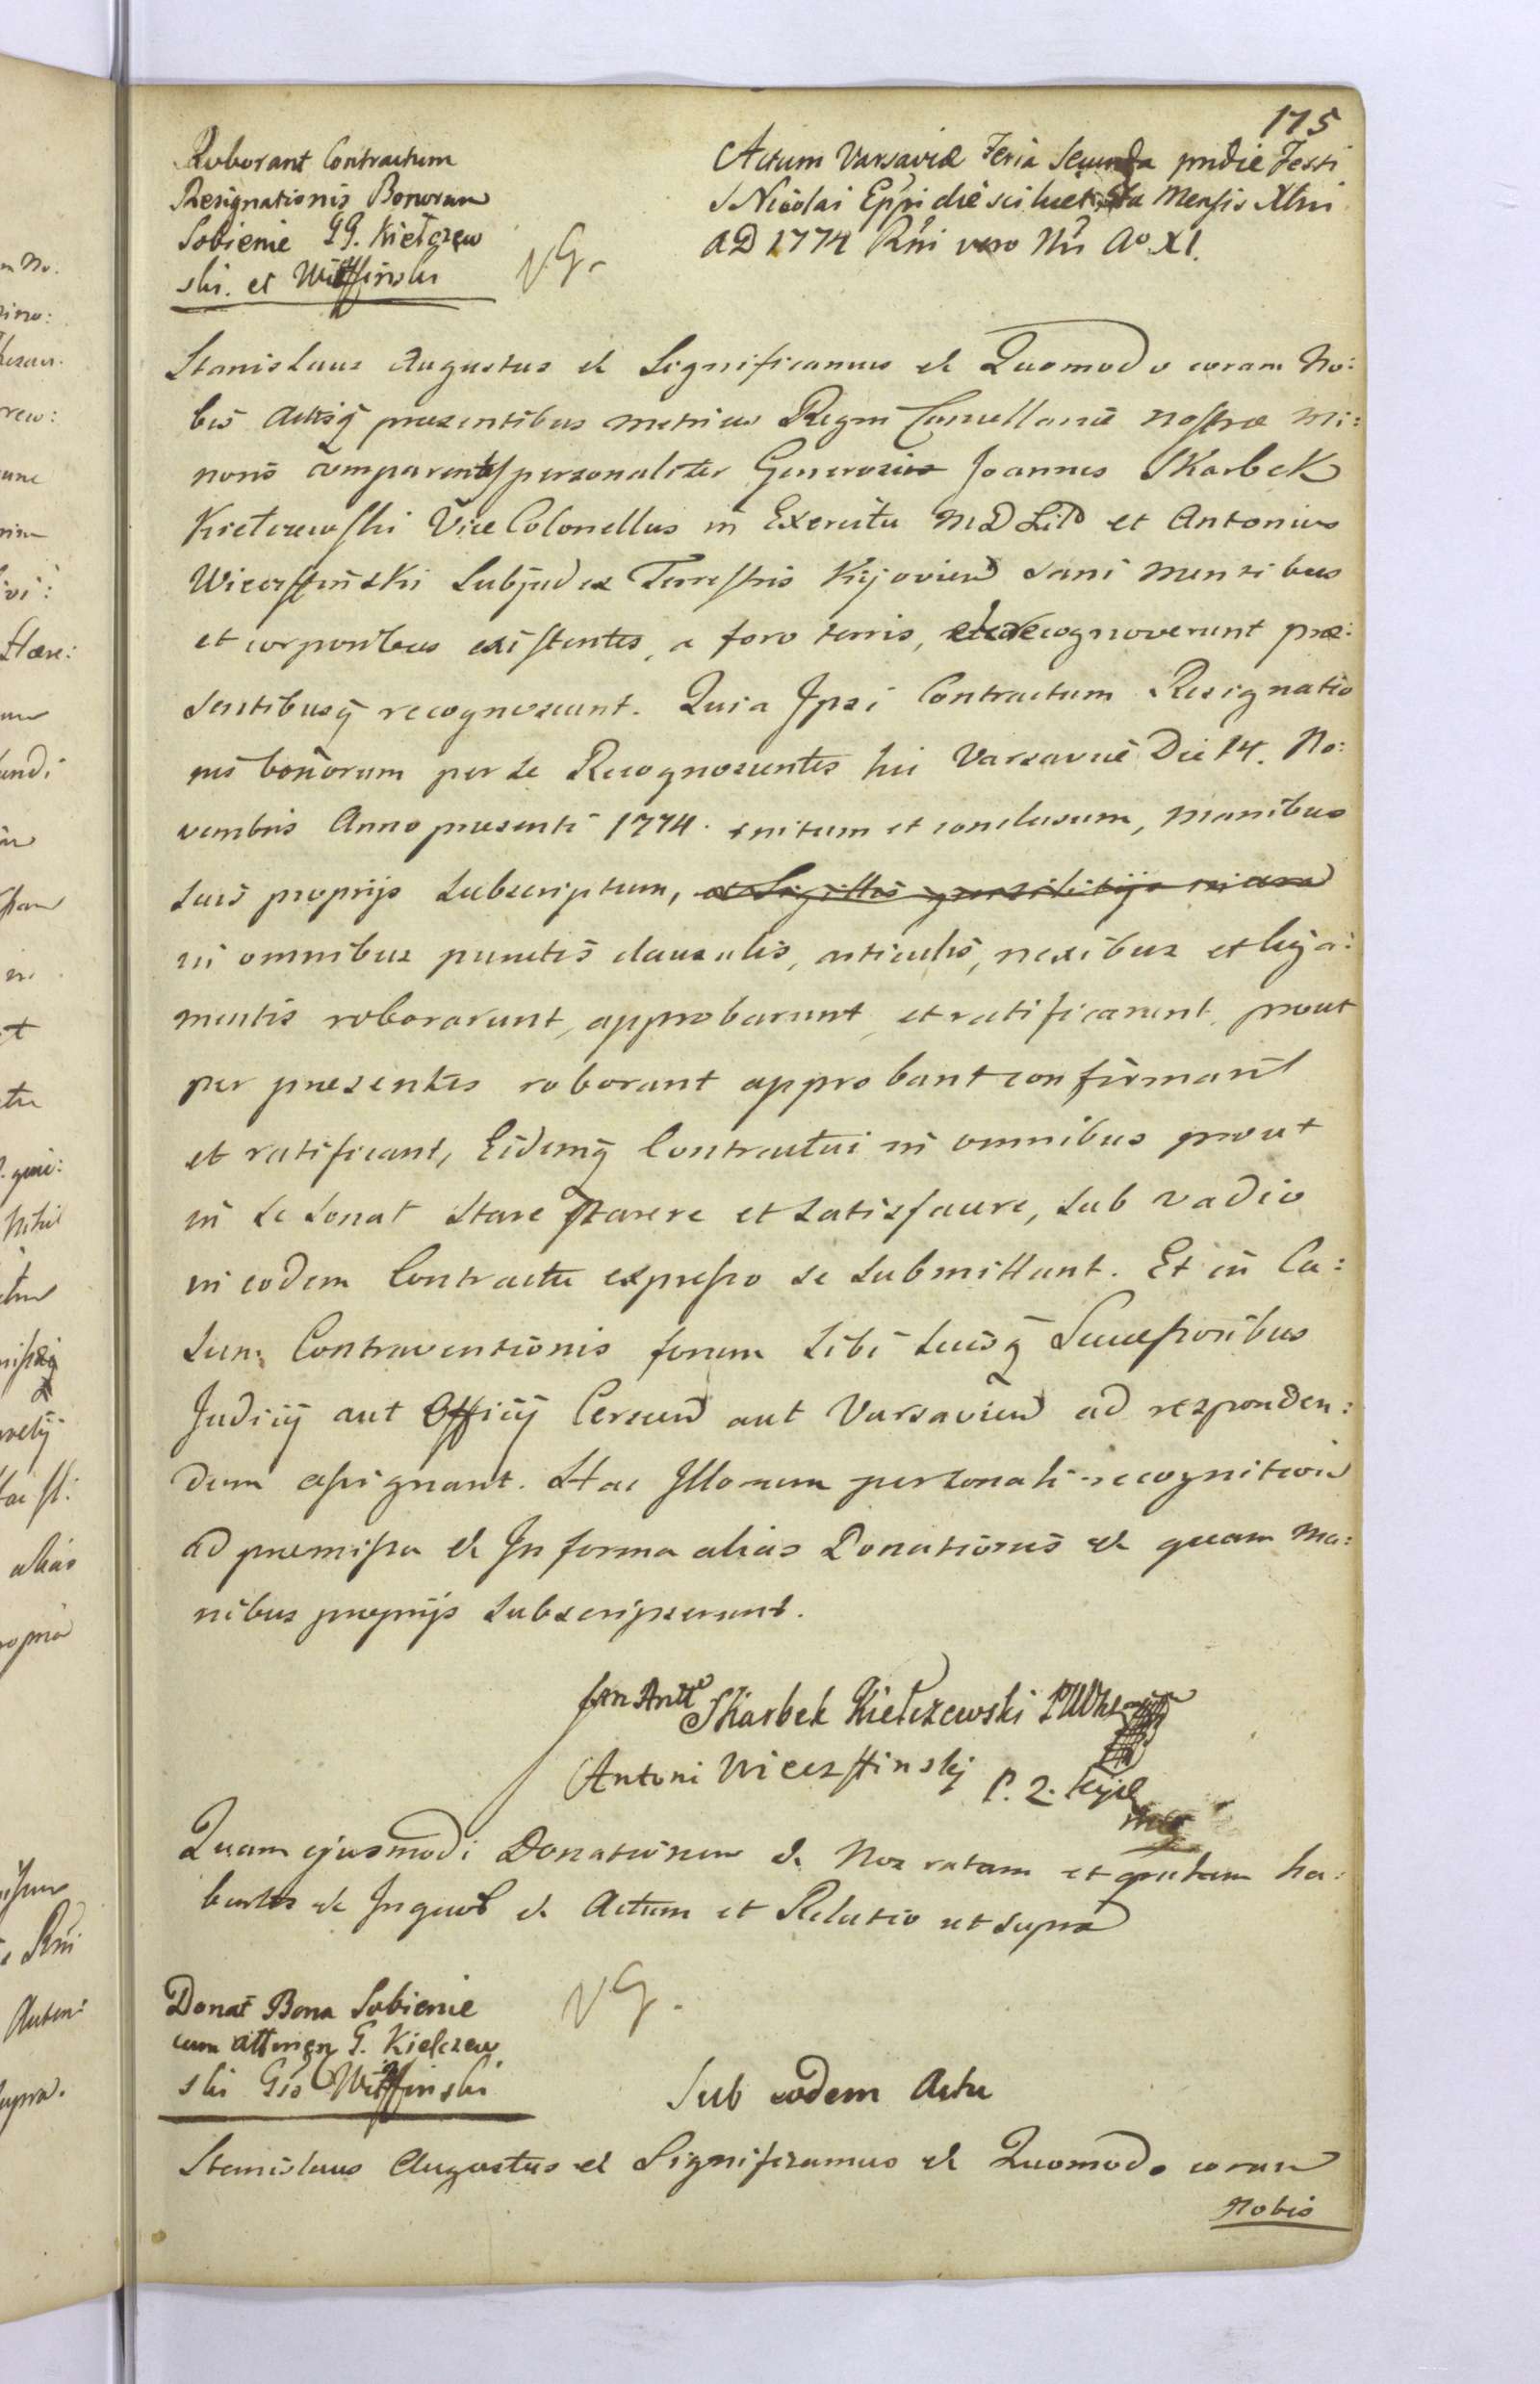 175
Roborant Contractum
Resignationis Bonorum
Sobienie GG. Kiełczew
ski. et Witffinski
VG.
Actum Varsaviæ Feria Secunda pridie Festi
S Nicolai Eppi die scilicet 5ta Mensis Xbri
AD 1774 Rni vero Nri Ao XI.
Stanislaus Augustus et Significamus et Quomodo coram No:
bis Actisq̃ præsentibus metrices Regni Cancellariæ nostræ Mi:
noris comparentes personaliter Generosi Joannes Skarbek
Kiełczewski Vice Colonellus in Exercitu MD Litt et Antonius
Wierffinski Subjudex Terrestris Kijovien sani mentibus
et corporibus existentes, a foro terris, recognoverunt præ:
sentibusq̃ recognoscunt. Quia Ipsi Contractum Resignatio
nis bonorum per se Recognoscentes hic Varsaviæ Die 14. No:
vembris Anno præsenti 1774. initum et conclusum, manibus
suis proprijs subscriptum, et Sigillis gentilitijs
in omnibus punctis clausulis, articulis, nexibus et liga:
mentis roborarunt, approbarunt, et ratificarunt, prout
per præsentes roborant approbant confirmant
et ratificant, Eidemq̃ Contractui in omnibus prout
in se sonat stare parere et satisfacere, sub vadio
in eodem Contractu expresso se submittunt. Et in Ca:
sum Contraventionis forum sibi suisq̃ Successoribus
Judicij aut Officij Cersen aut Varsavien ad responden:
dum assignant. Hac Illorum personali recognitione
ad præmissa et In forma alias Donationis et quam Ma:
nibus proprijs subscripserunt.
Jan Antt Skarbek Kiełczewski
Antoni Wierffinskj P. Z. Kijo
Quam ejusmodi Donationem et Nos ratam et gratam ha:
bentes et In quor et Actum et Relatio ut supra
Donat Bona Sobienie
cum attinen G. Kielczew
ski Gso Witffinski
VG.
Sub eodem Actu
Stanislaus Augustus et Significamus et Quomodo coram
Nobis